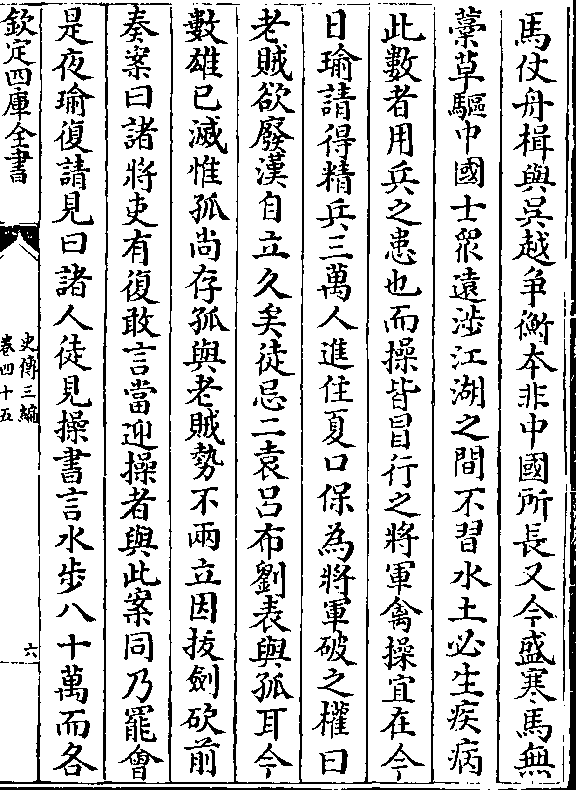 馬仗舟楫與吳越争衡本非中國所長又今盛寒馬無
藁草驅中國士衆遠渉江湖之間不習水土必生疾病
此數者用兵之患也而操皆冒行之將軍禽操宜在今
日瑜請得精兵三萬人進住夏口保為將軍破之權曰
老賊欲廢漢自立久矣徒忌二袁呂布劉表與孤耳今
數雄已滅惟孤尚存孤與老賊勢不兩立因拔劍砍前
奏案曰諸將吏有復敢言當迎操者與此案同乃罷會
是夜瑜復請見曰諸人徒見操書言水步八十萬而各
欽定四庫全書
史傳三編
卷四十五
六